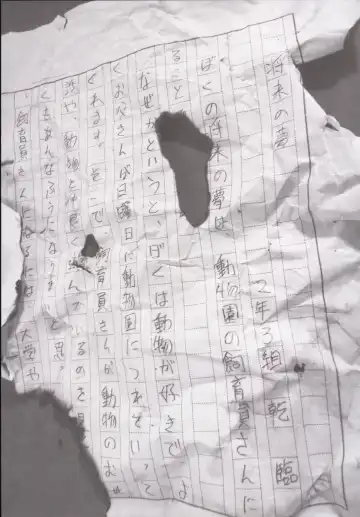 将来の夢
2年3組 乾 臨
ぼくの将来の夢は 動物園の飼育員さんに
ること
なぜかというと、ぼくは動物が好きで よ
くお父さんが日曜日に動物園につれていって
くれます。そこで、飼育員さんが動物のお
話や、動物と仲良く んでいるのを見
くもあんなふうになりた と思
飼育員さんになるには、大学や